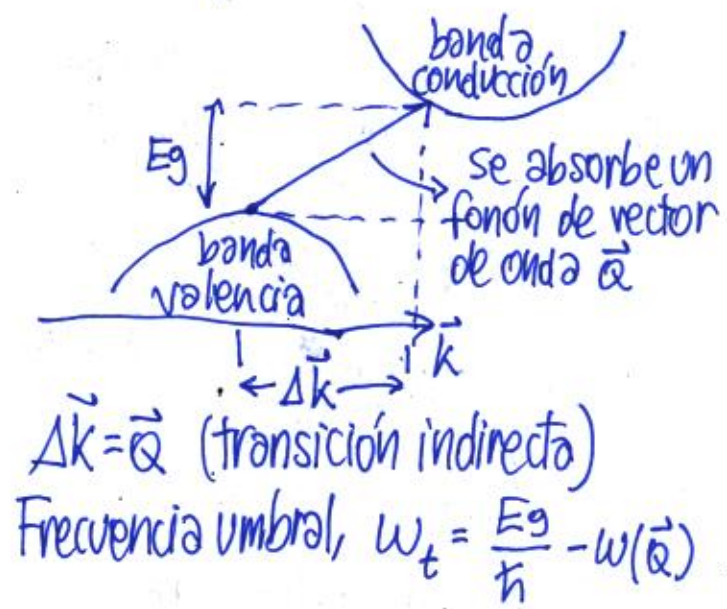 banda
conducción
Eg
se absorbe un
fonón de vector
de onda Q⃗
banda
valencia
k⃗
Δk⃗
Δk⃗ = Q⃗ (transición indirecta)
Frecuencia umbral, ω_t = Eg/ħ - ω(Q⃗)